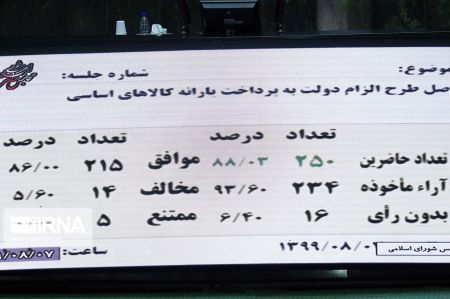 موضوع: شماره جلسه:
اصل طرح الزام دولت به پرداخت یارانه کالاهای اساسی
تعداد درصد تعداد درصد
تعداد حاضرین ۲۵۰ ۸۸/۰۳ موافق ۲۱۵ ۸۶/۰۰
آراء مأخوذه ۲۳۴ ۹۳/۶۰ مخالف ۱۴ ۵/۶۰
بدون رأی ۱۶ ۶/۴۰ ممتنع ۵
شورای اسلامی ۱۳۹۹/۰۸/۰ ساعت: ۰۸/۰۷
IRNA